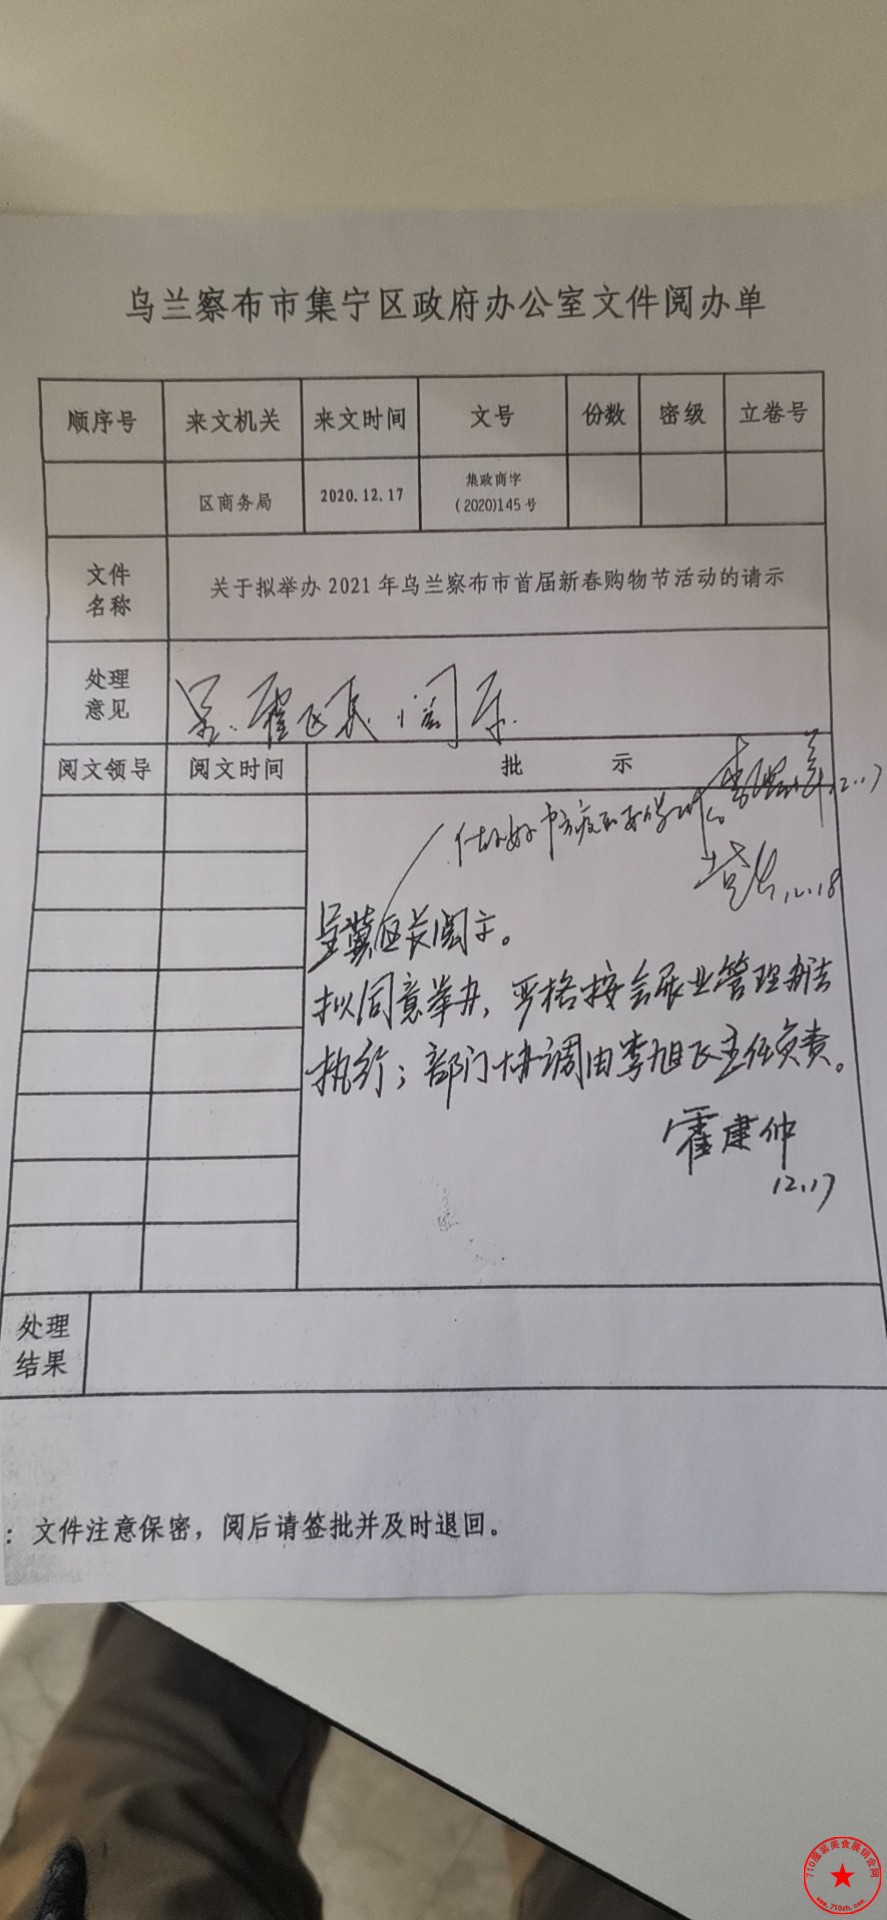 乌兰察布市集宁区政府办公室文件阅办单
顺序号 来文机关 来文时间 文号 份数 密级 立卷号
区商务局 2020.12.17 集政商字
(2020)145号
文件
名称
关于拟举办2021年乌兰察布市首届新春购物节活动的请示
处理
意见
呈霍飞 阅示.
阅文领导 阅文时间 批 示
12.17
做好
12.18
呈冀区长阅示。
拟同意举办,严格按会展业管理办法
执行;部门协调由李旭飞主任负责。
霍建仲
12.17
处理
结果
:文件注意保密,阅后请签批并及时退回。
710服装美食展销会网
www.710zh.com